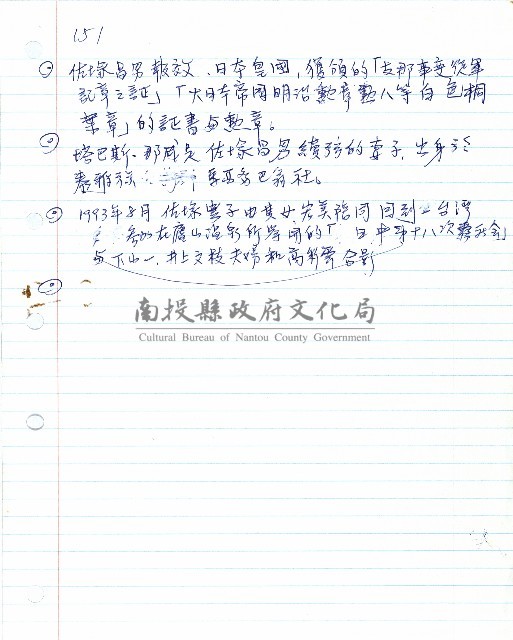 151
佐塚昌男報效、日本皇國，獲頒的「支那事變從軍
記章之証」「大日本帝國明治勲章勲八等白色桐
葉章」的証書与勲章。
塔巴斯．那威是佐塚昌男續弦的妻子，出身於
泰雅族 巴翁社。
1993年8月佐塚 子由其女完美陪同回到 台灣
参加在廬山温泉所舉開的「 日中 十八次霧社会」
与下山一、井上文枝夫婦和高彩雲合影
南投縣政府文化局
Cultural Bureau of Nantou County Government